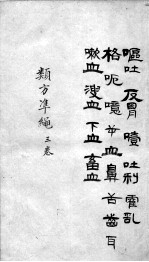 嘔吐 反胃 噎 吐利 霍乱
格 呃 噫 血 鼻 舌 齒 耳
嗽血 溲血 下血 畜血
類方準繩 三卷